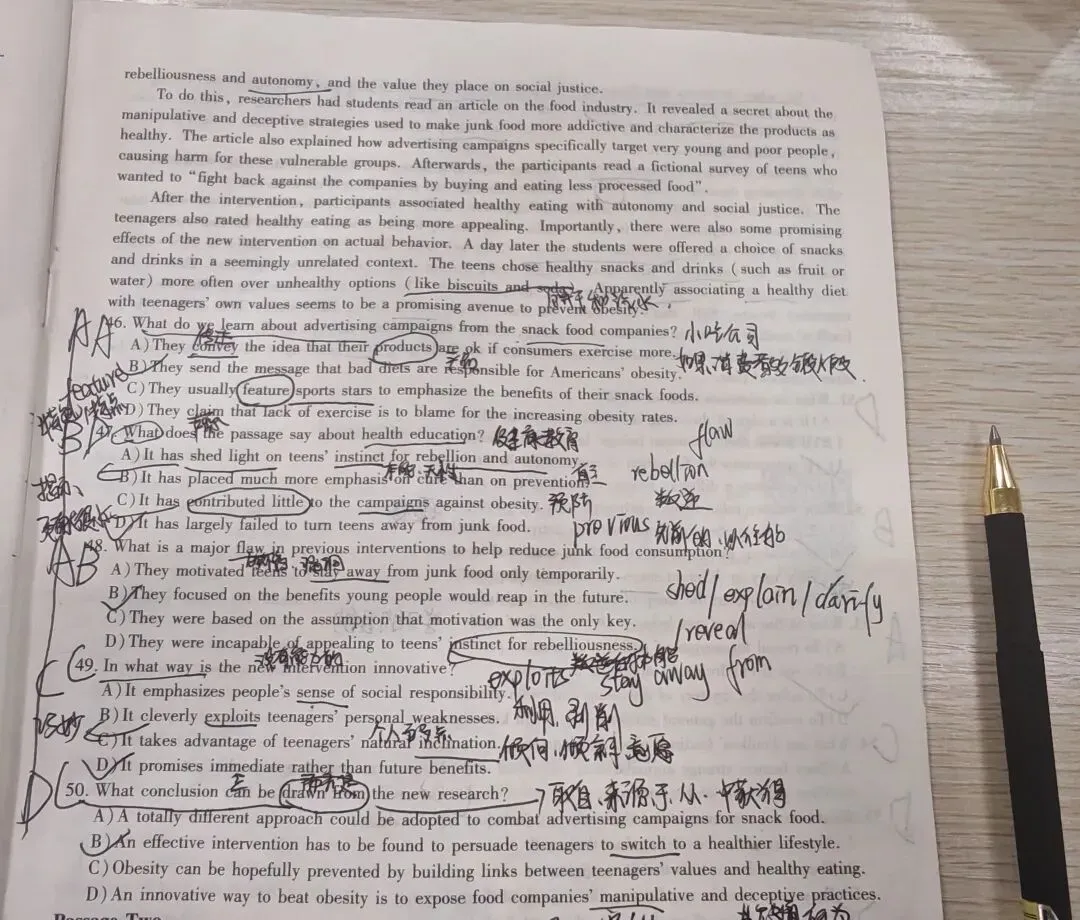 rebelliousness and autonomy, and the value they place on social justice.
To do this, researchers had students read an article on the food industry. It revealed a secret about the
manipulative and deceptive strategies used to make junk food more addictive and characterize the products as
healthy. The article also explained how advertising campaigns specifically target very young and poor people,
causing harm for these vulnerable groups. Afterwards, the participants read a fictional survey of teens who
wanted to “fight back against the companies by buying and eating less processed food”.
After the intervention, participants associated healthy eating with autonomy and social justice. The
teenagers also rated healthy eating as being more appealing. Importantly, there were also some promising
effects of the new intervention on actual behavior. A day later the students were offered a choice of snacks
and drinks in a seemingly unrelated context. The teens chose healthy snacks and drinks (such as fruit or
water) more often over unhealthy options (like biscuits and soda). Apparently associating a healthy diet
with teenagers' own values seems to be a promising avenue to prevent obesity.
AA
46. What do we learn about advertising campaigns from the snack food companies? 小吃公司
A) They convey the idea that their products are ok if consumers exercise more.
B) They send the message that bad diets are responsible for Americans' obesity.
feature
C) They usually feature sports stars to emphasize the benefits of their snack foods.
D) They claim that lack of exercise is to blame for the increasing obesity rates.
B
47. What does the passage say about health education? 健康教育
flaw
A) It has shed light on teens' instinct for rebellion and autonomy.
rebellion
B) It has placed much more emphasis on cure than on prevention.
C) It has contributed little to the campaigns against obesity. 预防
叛逆
D) It has largely failed to turn teens away from junk food.
previous 先前的、以往的
AB
48. What is a major flaw in previous interventions to help reduce junk food consumption?
A) They motivated teens to stay away from junk food only temporarily.
B) They focused on the benefits young people would reap in the future.
shed/explain/clarify
C) They were based on the assumption that motivation was the only key.
/reveal
D) They were incapable of appealing to teens' instinct for rebelliousness.
没有能力的
C
49. In what way is the new intervention innovative?
exploits
stay away from
A) It emphasizes people's sense of social responsibility.
B) It cleverly exploits teenagers' personal weaknesses. 利用、剥削
巧妙
个人弱点
C) It takes advantage of teenagers' natural inclination. 倾向、倾斜、意愿
D) It promises immediate rather than future benefits.
D
50. What conclusion can be drawn from the new research? 取自、来源于、从…中获得
A) A totally different approach could be adopted to combat advertising campaigns for snack food.
B) An effective intervention has to be found to persuade teenagers to switch to a healthier lifestyle.
C) Obesity can be hopefully prevented by building links between teenagers' values and healthy eating.
D) An innovative way to beat obesity is to expose food companies' manipulative and deceptive practices.